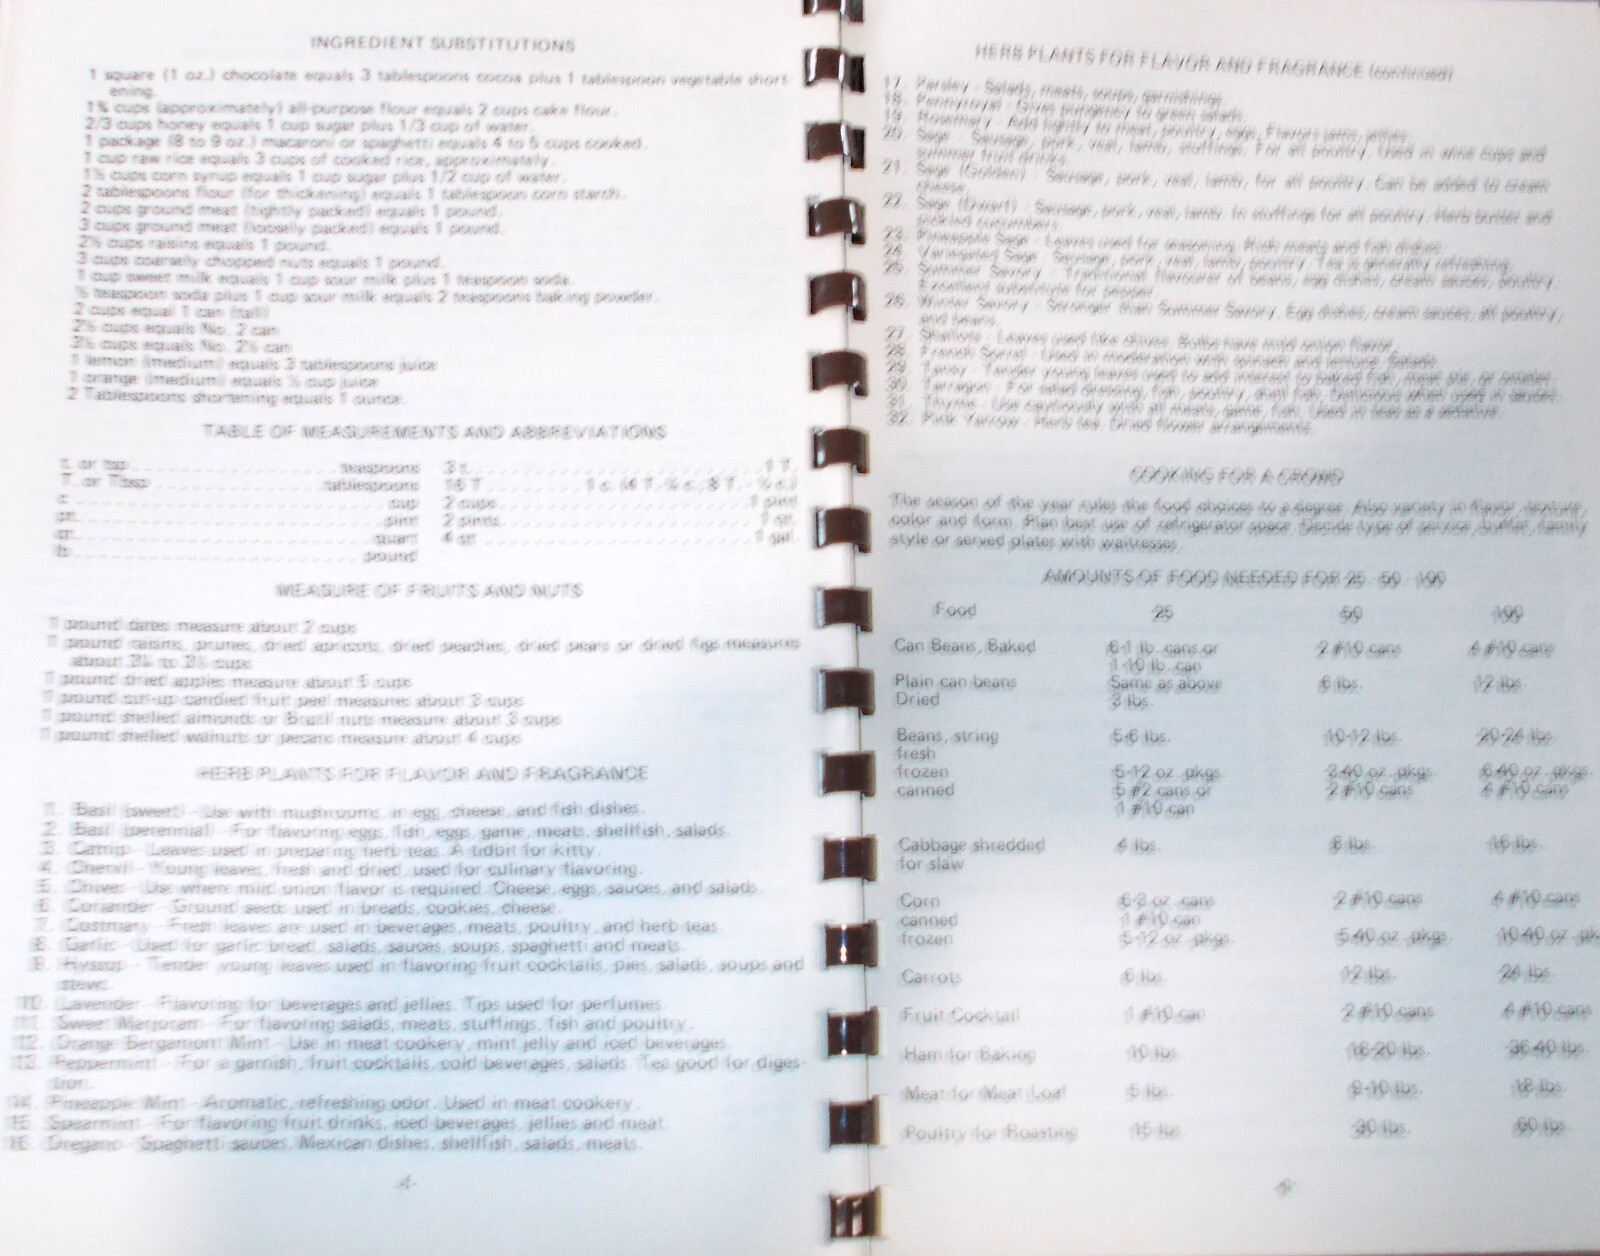 INGREDIENT SUBSTITUTIONS
1 square (1 oz.) chocolate equals 3 tablespoons cocoa plus 1 tablespoon vegetable short-
ening.
cups (approximately) all-purpose flour equals 2 cups cake flour.
2/3 cups honey equals 1 cup sugar plus 1/3 cup of water.
1 package (8 to 9 oz.) macaroni or spaghetti equals 4 to 5 cups cooked.
1 cup raw rice equals 3 cups of cooked rice, approximately.
1½ cups corn syrup equals 1 cup sugar plus 1/2 cup of water.
2 tablespoons flour (for thickening) equals 1 tablespoon corn starch.
2 cups ground meat (tightly packed) equals 1 pound.
3 cups ground meat (loosely packed) equals 1 pound.
2½ cups raisins equals 1 pound.
3 cups coarsely chopped nuts equals 1 pound.
1 cup sweet milk equals 1 cup sour milk plus 1 teaspoon soda.
½ teaspoon soda plus 1 cup sour milk equals 2 teaspoons baking powder.
2 cups equal 1 can (tall)
2½ cups equals No. 2 can
3½ cups equals No. 2½ can
1 lemon (medium) equals 3 tablespoons juice
1 orange (medium) equals cup juice
2 Tablespoons shortening equals 1 ounce.
TABLE OF MEASUREMENTS AND ABBREVIATIONS
t. or tsp. teaspoons 3 t. 1 T.
T. or Tbsp. tablespoons 16 T. 1 c. (4 T.-¼ c.; 8 T. - ½ c.)
c. cup 2 cups 1 pint
pt. pint 2 pints 1 qt.
qt. quart 4 qt. 1 gal.
lb. pound
MEASURE OF FRUITS AND NUTS
1 pound dates measure about 2 cups
1 pound raisins, prunes, dried apricots, dried peaches, dried pears or dried figs measures
about to cups
1 pound dried apples measure about 5 cups
1 pound cut-up candied fruit peel measures about 3 cups
1 pound shelled almonds or Brazil nuts measure about 3 cups
1 pound shelled walnuts or pecans measure about 4 cups
HERB PLANTS FOR FLAVOR AND FRAGRANCE
1. Basil (sweet) - Use with mushrooms, in egg, cheese, and fish dishes.
2. Basil (perennial) - For flavoring eggs, fish, eggs, game, meats, shellfish, salads.
3. Catnip - Leaves used in preparing herb teas. A tidbit for kitty.
4. Chervil - Young leaves, fresh and dried, used for culinary flavoring.
5. Chives - Use where mild onion flavor is required. Cheese, eggs, sauces, and salads.
6. Coriander - Ground seeds used in breads, cookies, cheese.
7. Costmary - Fresh leaves are used in beverages, meats, poultry, and herb teas.
8. Garlic - Used for garlic bread, salads, sauces, soups, spaghetti and meats.
9. Hyssop - Tender young leaves used in flavoring fruit cocktails, pies, salads, soups and
stews.
10. Lavender - Flavoring for beverages and jellies. Tips used for perfumes.
11. Sweet Marjoram - For flavoring salads, meats, stuffings, fish and poultry.
12. Orange Bergamont Mint - Use in meat cookery, mint jelly and iced beverages.
13. Peppermint - For a garnish, fruit cocktails, cold beverages, salads. Tea good for diges-
tion.
14. Pineapple Mint - Aromatic, refreshing odor. Used in meat cookery.
15. Spearmint - For flavoring fruit drinks, iced beverages, jellies and meat.
16. Oregano - Spaghetti sauces, Mexican dishes, shellfish, salads, meats.
-4-
HERB PLANTS FOR FLAVOR AND FRAGRANCE (continued)
17. Parsley - Salads, meats, soups, garnishings.
18. Pennyroyal - Gives pungency to green salads.
19. Rosemary - Add lightly to meat, poultry, eggs. Flavors jams, jellies.
20. Sage - Sausage, pork, veal, lamb, stuffings. For all poultry. Used in wine cups and
summer fruit drinks.
21. Sage (Golden) - Sausage, pork, veal, lamb, for all poultry. Can be added to cream
cheese.
22. Sage (Dwarf) - Sausage, pork, veal, lamb. In stuffings for all poultry. Herb butter and
pickled cucumbers.
23. Pineapple Sage - Leaves used for seasoning. Rich meats and fish dishes.
24. Variegated Sage - Sausage, pork, veal, lamb, poultry. Tea is generally refreshing.
25. Summer Savory - Traditional flavourer of beans, egg dishes, cream sauces, poultry.
Excellent substitute for pepper.
26. Winter Savory - Stronger than Summer Savory. Egg dishes, cream sauces, all poultry,
and beans.
27. Shallots - Leaves used like chives. Bulbs have mild onion flavor.
28. French Sorrel - Used in moderation with spinach and lettuce. Salads.
29. Tansy - Tender young leaves used to add interest to baked fish, meat pie, or omelet.
30. Tarragon - For salad dressing, fish, poultry, shell fish. Delicious when used in sauces.
31. Thyme - Use cautiously with all meats, game, fish. Used in teas as a sedative.
32. Pink Yarrow - Herb tea. Dried flower arrangements.
COOKING FOR A CROWD
The season of the year rules the food choices to a degree. Also variety in flavor, texture,
color and form. Plan best use of refrigerator space. Decide type of service, buffet, family
style or served plates with waitresses.
AMOUNTS OF FOOD NEEDED FOR 25 - 50 - 100
Food 25 50 100
Can Beans, Baked 6-1 lb. cans or 2 #10 cans 4 #10 cans
1-10 lb. can
Plain can beans Same as above 6 lbs. 12 lbs.
Dried 3 lbs.
Beans, string 5-6 lbs. 10-12 lbs. 20-24 lbs.
fresh
frozen 5-12 oz. pkgs. 3-40 oz. pkgs. 6-40 oz. pkgs.
canned 5 #2 cans or 2 #10 cans 4 #10 cans
1 #10 can
Cabbage shredded 4 lbs. 8 lbs. 16 lbs.
for slaw
Corn oz. cans 2 #10 cans 4 #10 cans
canned 1 #10 can
frozen 5-12 oz. pkgs. 5-40 oz. pkgs. 10-40 oz. pk
Carrots 6 lbs. 12 lbs. 24 lbs.
Fruit Cocktail 1 #10 can 2 #10 cans 4 #10 cans
Ham for Baking 10 lbs. 18-20 lbs. 36-40 lbs.
Meat for Meat Loaf 5 lbs. 9-10 lbs. 18 lbs.
Poultry for Roasting 15 lbs. 30 lbs. 60 lbs.